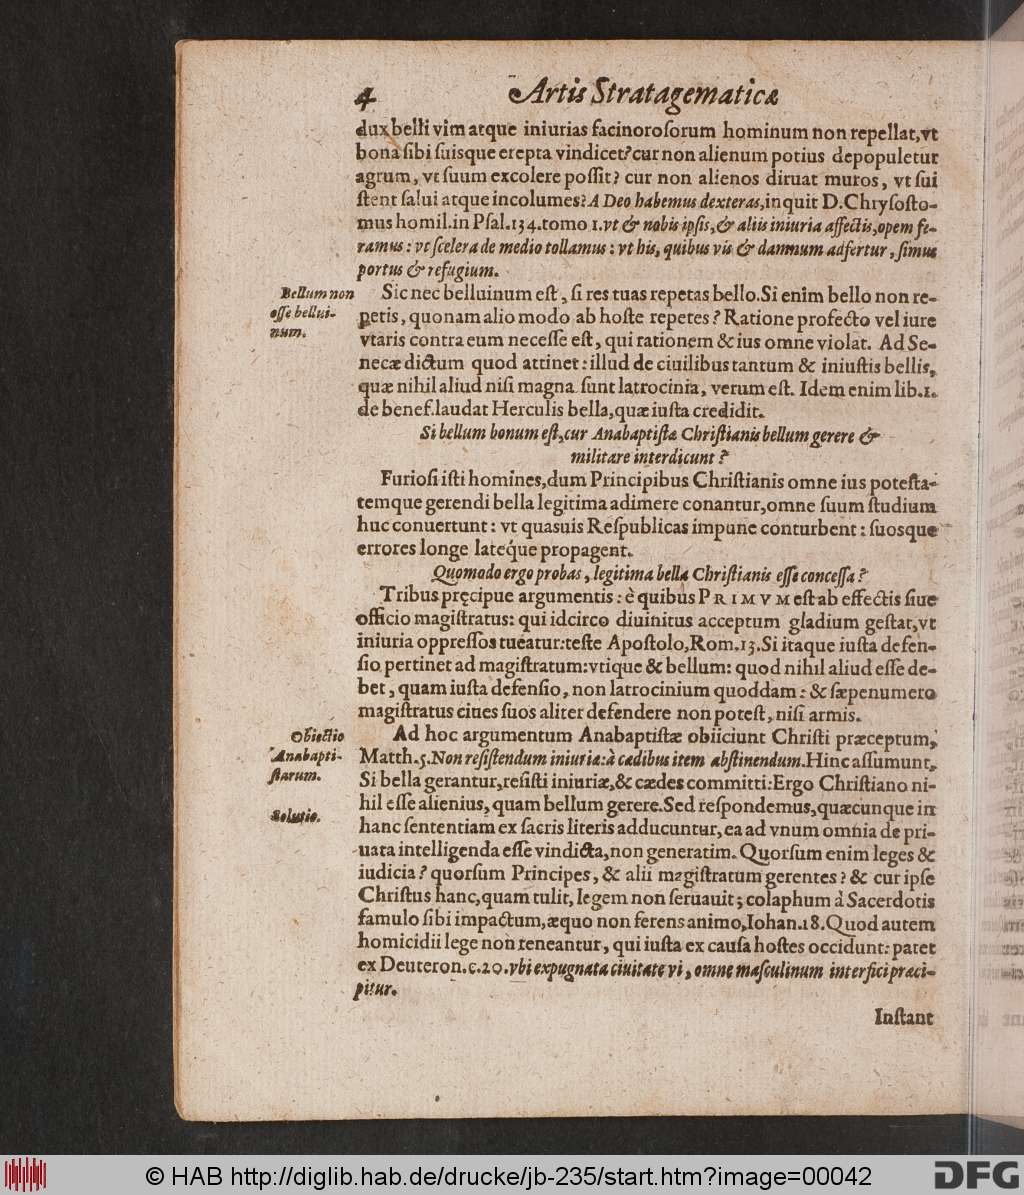 4 Artis Stratagematicæ
dux belli vim atque iniurias facinoroſorum hominum non repellat, vt
bona ſibi ſuisque erepta vindicet? cur non alienum potius depopuletur
agrum, vt ſuum excolere poſſit? cur non alienos diruat muros, vt ſui
ſtent ſalui atque incolumes? A Deo habemus dexteras, inquit D. Chryſoſto-
mus homil. in Pſal. 134. tomo 1. vt & nobis ipſis, & aliis iniuria affectis, opem fe-
ramus: vt ſcelera de medio tollamus: vt his, quibus vis & damnum adfertur, ſimus
portus & refugium.
Bellum non
eſſe bellui-
num.
Sic nec belluinum eſt, ſi res tuas repetas bello. Si enim bello non re-
petis, quonam alio modo ab hoſte repetes? Ratione profecto vel iure
vtaris contra eum neceſſe eſt, qui rationem & ius omne violat. Ad Se-
necæ dictum quod attinet: illud de ciuilibus tantum & iniuſtis bellis,
quæ nihil aliud niſi magna ſunt latrocinia, verum eſt. Idem enim lib. 1.
de benef. laudat Herculis bella, quæ iuſta credidit.
Si bellum bonum eſt, cur Anabaptiſtæ Chriſtianis bellum gerere &
militare interdicunt?
Furioſi iſti homines, dum Principibus Chriſtianis omne ius poteſta-
temque gerendi bella legitima adimere conantur, omne ſuum ſtudium
huc conuertunt: vt quasuis Reſpublicas impune conturbent: ſuosque
errores longe latéque propagent.
Quomodo ergo probas, legitima bella Chriſtianis eſſe conceſſa?
Tribus pręcipue argumentis: è quibus PRIMVM eſt ab effectis ſiue
officio magiſtratus: qui idcirco diuinitus acceptum gladium geſtat, vt
iniuria oppreſſos tueatur: teſte Apoſtolo, Rom. 13. Si itaque iuſta defen-
ſio pertinet ad magiſtratum: vtique & bellum: quod nihil aliud eſſe de-
bet, quam iuſta defenſio, non latrocinium quoddam: & ſæpenumero
magiſtratus ciues ſuos aliter defendere non poteſt, niſi armis.
Obiectio
Anabapti-
ſtarum.
Solutio.
Ad hoc argumentum Anabaptiſtæ obiiciunt Chriſti præceptum,
Matth. 5. Non reſiſtendum iniuriæ: à cædibus item abſtinendum. Hinc aſſumunt,
Si bella gerantur, reſiſti iniuriæ, & cædes committi: Ergo Chriſtiano ni-
hil eſſe alienius, quam bellum gerere. Sed reſpondemus, quæcunque in
hanc ſententiam ex ſacris literis adducuntur, ea ad vnum omnia de pri-
uata intelligenda eſſe vindicta, non generatim. Quorſum enim leges &
iudicia? quorſum Principes, & alii magiſtratum gerentes? & cur ipſe
Chriſtus hanc, quam tulit, legem non ſeruauit; colaphum à Sacerdotis
famulo ſibi impactum, æquo non ferens animo, Iohan. 18. Quod autem
homicidii lege non teneantur, qui iuſta ex cauſa hoſtes occidunt: patet
ex Deuteron. c. 20. vbi expugnata ciuitate vi, omne maſculinum interfici præci-
pitur.
Inſtant
© HAB http://diglib.hab.de/drucke/jb-235/start.htm?image=00042
DFG